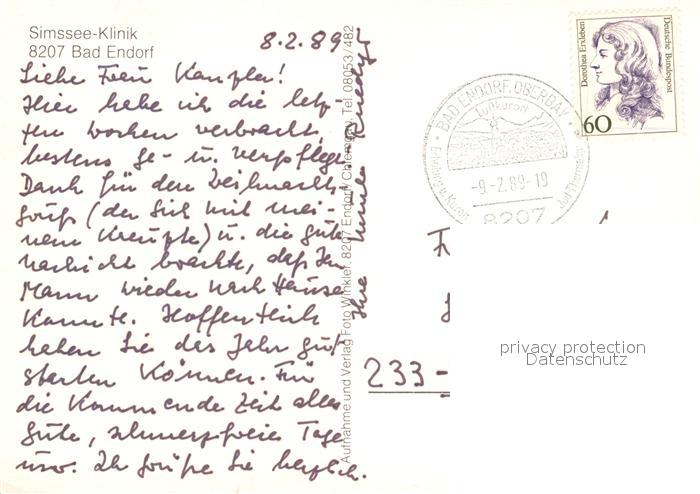 Simssee-Klinik
8207 Bad Endorf
8.2.89
Liebe Frau Kanzler!
Hier habe ich die letz-
ten Wochen verbracht,
bestens ge- u. verpflegt.
Dank für den Weihnachts-
gruß (der sich mit mei-
nem kreuzte) u. die gute
Nachricht brachte, daß Ihr
Mann wieder nach Hause
konnte. Hoffentlich
haben Sie das Jahr gut
starten können. Für
die kommende Zeit alles
Gute, schmerzfreie Tage
usw. Ich grüße Sie herzlich.
Ihre
Aufnahme und Verlag Foto Winkler, 8207 Endorf/Chiemgau, Tel. 08053/482
BAD ENDORF, OBERBAY
Luftkurort
-9.-2.89-19
8207
Dorothea Erxleben
Deutsche Bundespost
60
233-
privacy protection
Datenschutz